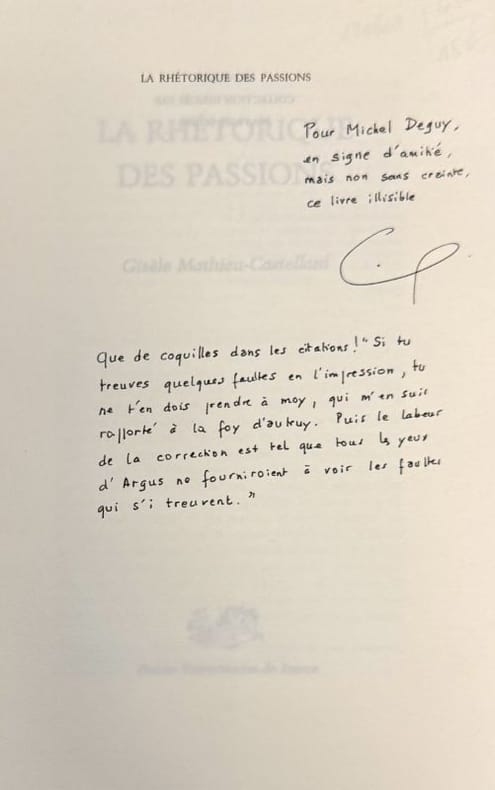 LA RHÉTORIQUE DES PASSIONS
LA RHÉTORIQUE
DES PASSIONS
Pour Michel Deguy,
en signe d'amitié,
mais non sans crainte,
ce livre illisible
Gisèle Mathieu-Castellani
Que de coquilles dans les citations ! "Si tu
treuves quelques faultes en l'impression, tu
ne t'en dois prendre à moy, qui m'en suis
rapporté à la foy d'autruy. Puis le labeur
de la correction est tel que tous les yeux
d'Argus ne fourniroient à voir les faultes
qui s'i treuvent."
Presses Universitaires de France